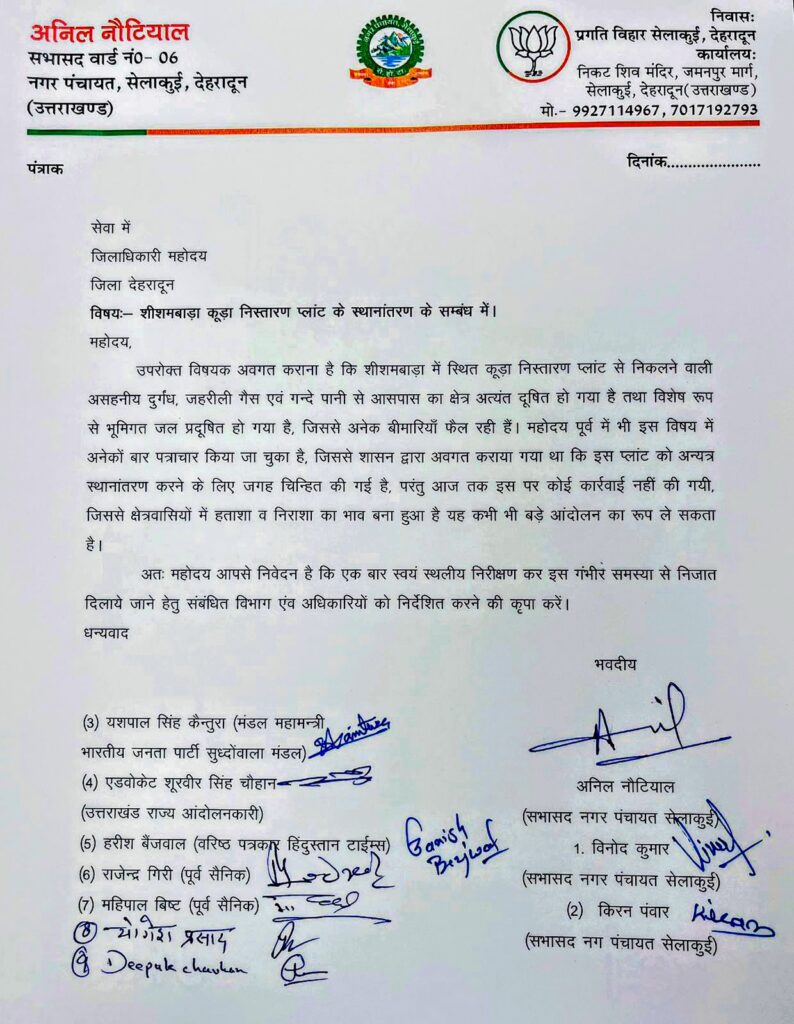 अनिल नौटियाल
सभासद वार्ड नं0- 06
नगर पंचायत, सेलाकुई, देहरादून
(उत्तराखण्ड)
निवासः
प्रगति विहार सेलाकुई, देहरादून
कार्यालयः
निकट शिव मंदिर, जमनपुर मार्ग,
सेलाकुई, देहरादून(उत्तराखण्ड)
मो.- 9927114967, 7017192793
पंत्राक
दिनांक......................
सेवा में
जिलाधिकारी महोदय
जिला देहरादून
विषयः– शीशमबाड़ा कूड़ा निस्तारण प्लांट के स्थानांतरण के सम्बंध में।
महोदय,
उपरोक्त विषयक अवगत कराना है कि शीशमबाड़ा में स्थित कूड़ा निस्तारण प्लांट से निकलने वाली
असहनीय दुर्गंध, जहरीली गैस एवं गन्दे पानी से आसपास का क्षेत्र अत्यंत दूषित हो गया है तथा विशेष रूप
से भूमिगत जल प्रदूषित हो गया है, जिससे अनेक बीमारियाँ फैल रही हैं। महोदय पूर्व में भी इस विषय में
अनेकों बार पत्राचार किया जा चुका है, जिससे शासन द्वारा अवगत कराया गया था कि इस प्लांट को अन्यत्र
स्थानांतरण करने के लिए जगह चिन्हित की गई है, परंतु आज तक इस पर कोई कार्रवाई नहीं की गयी,
जिससे क्षेत्रवासियों में हताशा व निराशा का भाव बना हुआ है यह कभी भी बड़े आंदोलन का रूप ले सकता
है।
अतः महोदय आपसे निवेदन है कि एक बार स्वयं स्थलीय निरीक्षण कर इस गंभीर समस्या से निजात
दिलाये जाने हेतु संबंधित विभाग एंव अधिकारियों को निर्देशित करने की कृपा करें।
धन्यवाद
भवदीय
Anil
अनिल नौटियाल
(सभासद नगर पंचायत सेलाकुई)
1. विनोद कुमार
(सभासद नगर पंचायत सेलाकुई)
(2) किरन पंवार
(सभासद नग पंचायत सेलाकुई)
(3) यशपाल सिंह कैन्तुरा (मंडल महामन्त्री
भारतीय जनता पार्टी सुध्दोंवाला मंडल)
(4) एडवोकेट शूरवीर सिंह चौहान
(उत्तराखंड राज्य आंदोलनकारी)
(5) हरीश बैंजवाल (वरिष्ठ पत्रकार हिंदुस्तान टाईम्स)
(6) राजेन्द्र गिरी (पूर्व सैनिक)
(7) महिपाल बिष्ट (पूर्व सैनिक)
(8) योगेश प्रसाद
(9) Deepak chauhan